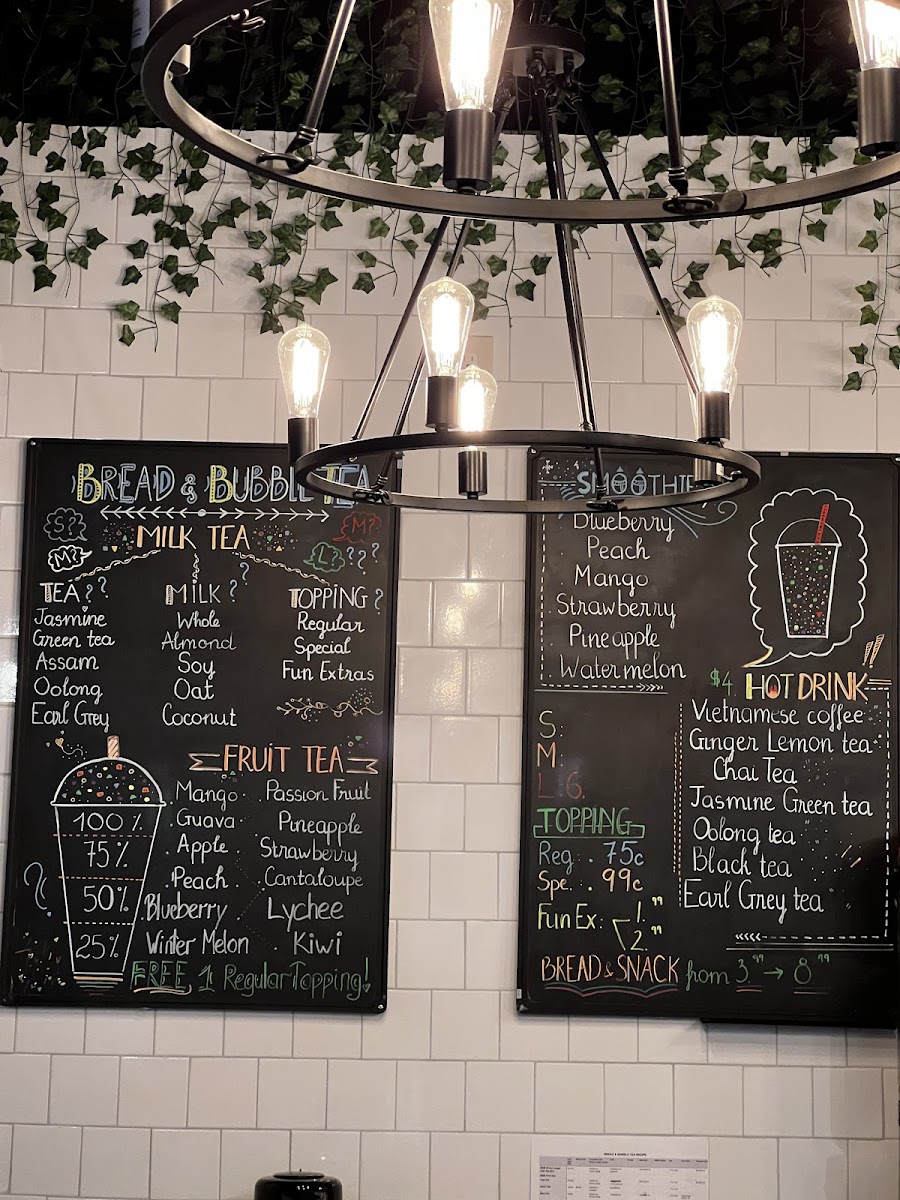 BREAD & BUBBLE TEA
S?
M?
MILK TEA
M?
L???
TEA??
Jasmine
Green tea
Assam
Oolong
Earl Grey
MILK??
Whole
Almond
Soy
Oat
Coconut
TOPPING?
Regular
Special
Fun Extras
FRUIT TEA
100%
75%
50%
25%
Mango
Guava
Apple
Peach
Blueberry
Winter Melon
Passion Fruit
Pineapple
Strawberry
Cantaloupe
Lychee
Kiwi
FREE 1 Regular Topping!
SMOOTHIE
Blueberry
Peach
Mango
Strawberry
Pineapple
Watermelon
S:
M:
L:6.
TOPPING
Reg. 75c
Spe. 99c
Fun Ex: 1.99
2.99
$4 HOT DRINK
Vietnamese coffee
Ginger Lemon tea
Chai Tea
Jasmine Green tea
Oolong tea
Black tea
Earl Grey tea
BREAD & SNACK from 3.99 → 8.99
BREAD & BUBBLE TEA RECIPE